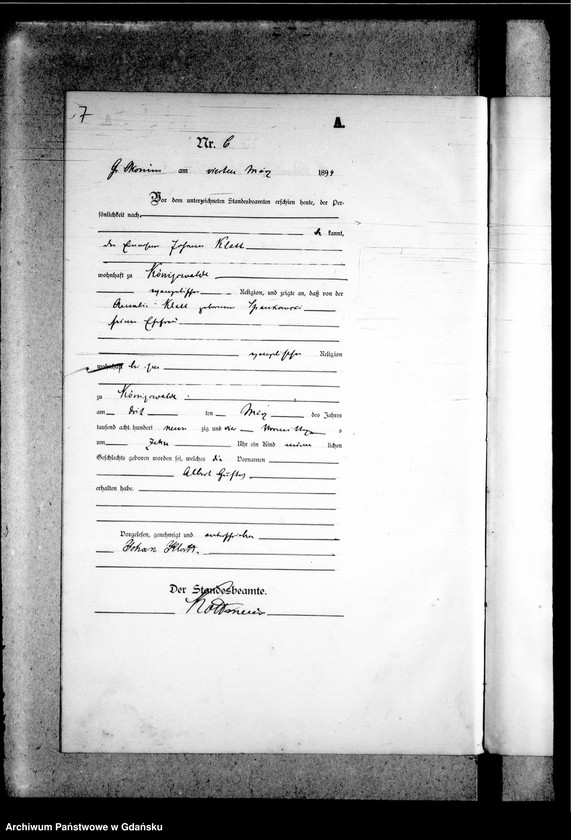 7
A.
Nr. 6
am vierten März 1894
Vor dem unterzeichneten Standesbeamten erschien heute, der Per-
sönlichkeit nach
kannt,
der Johann Klatt
wohnhaft zu Königswalde
evangelischer Religion, und zeigte an, daß von der
Klatt geborenen
seiner Ehefrau
evangelischer Religion
wohnhaft bei ihm
zu Königswalde
am dritten März des Jahres
tausend acht hundert neun zig und vier Vormittags
um zehn Uhr ein Kind männ lichen
Geschlechts geboren worden sei, welches die Vornamen
Albert Gustav
erhalten habe.
Vorgelesen, genehmigt und unterschrieben
Johan Klatt.
Der Standesbeamte.
Archiwum Państwowe w Gdańsku